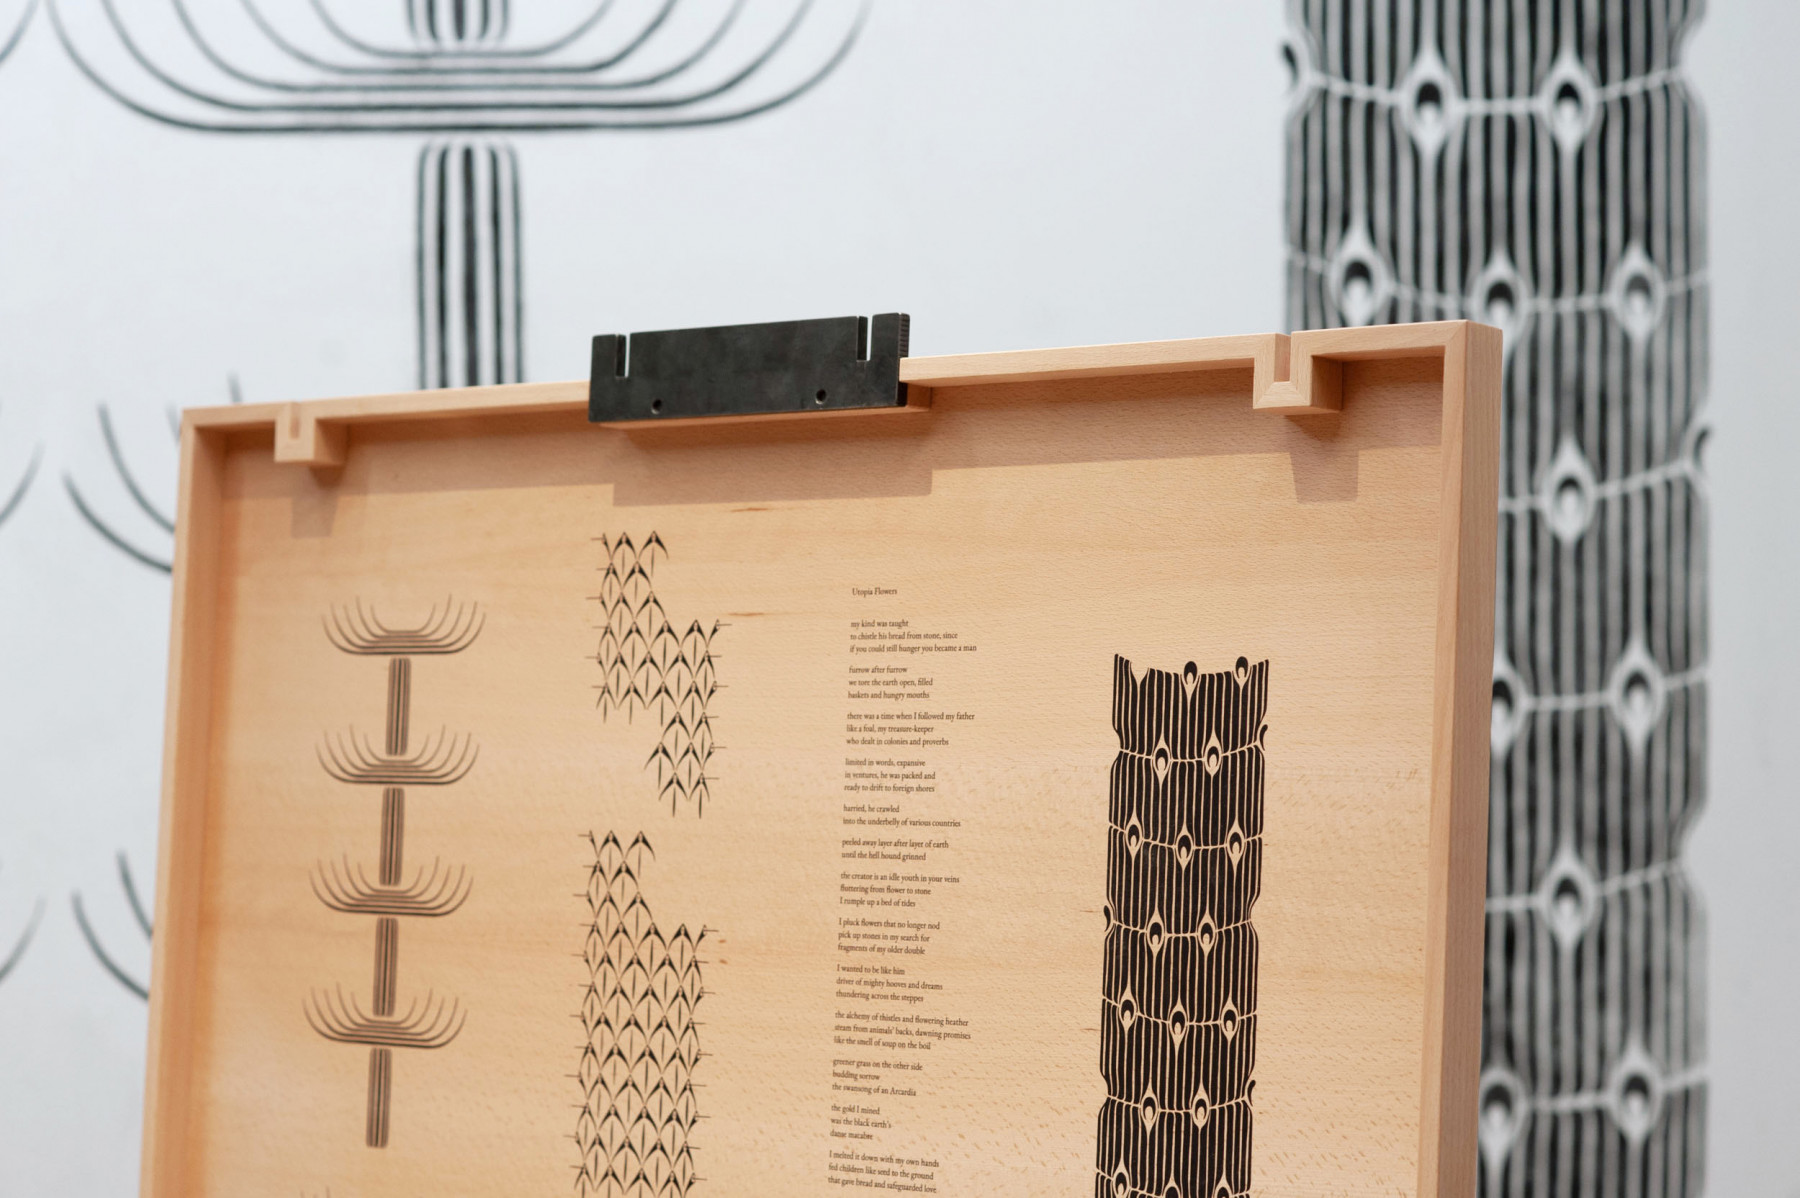 Utopia Flowers
my kind was taught
to chistle his bread from stone, since
if you could still hunger you became a man
furrow after furrow
we tore the earth open, filled
baskets and hungry mouths
there was a time when I followed my father
like a foal, my treasure-keeper
who dealt in colonies and proverbs
limited in words, expansive
in ventures, he was packed and
ready to drift to foreign shores
harried, he crawled
into the underbelly of various countries
peeled away layer after layer of earth
until the hell hound grinned
the creator is an idle youth in your veins
fluttering from flower to stone
I rumple up a bed of tides
I pluck flowers that no longer nod
pick up stones in my search for
fragments of my older double
I wanted to be like him
driver of mighty hooves and dreams
thundering across the steppes
the alchemy of thistles and flowering heather
steam from animals' backs, dawning promises
like the smell of soup on the boil
greener grass on the other side
budding sorrow
the swansong of an Arcardia
the gold I mined
was the black earth's
danse macabre
I melted it down with my own hands
fed children like seed to the ground
that gave bread and safeguarded love